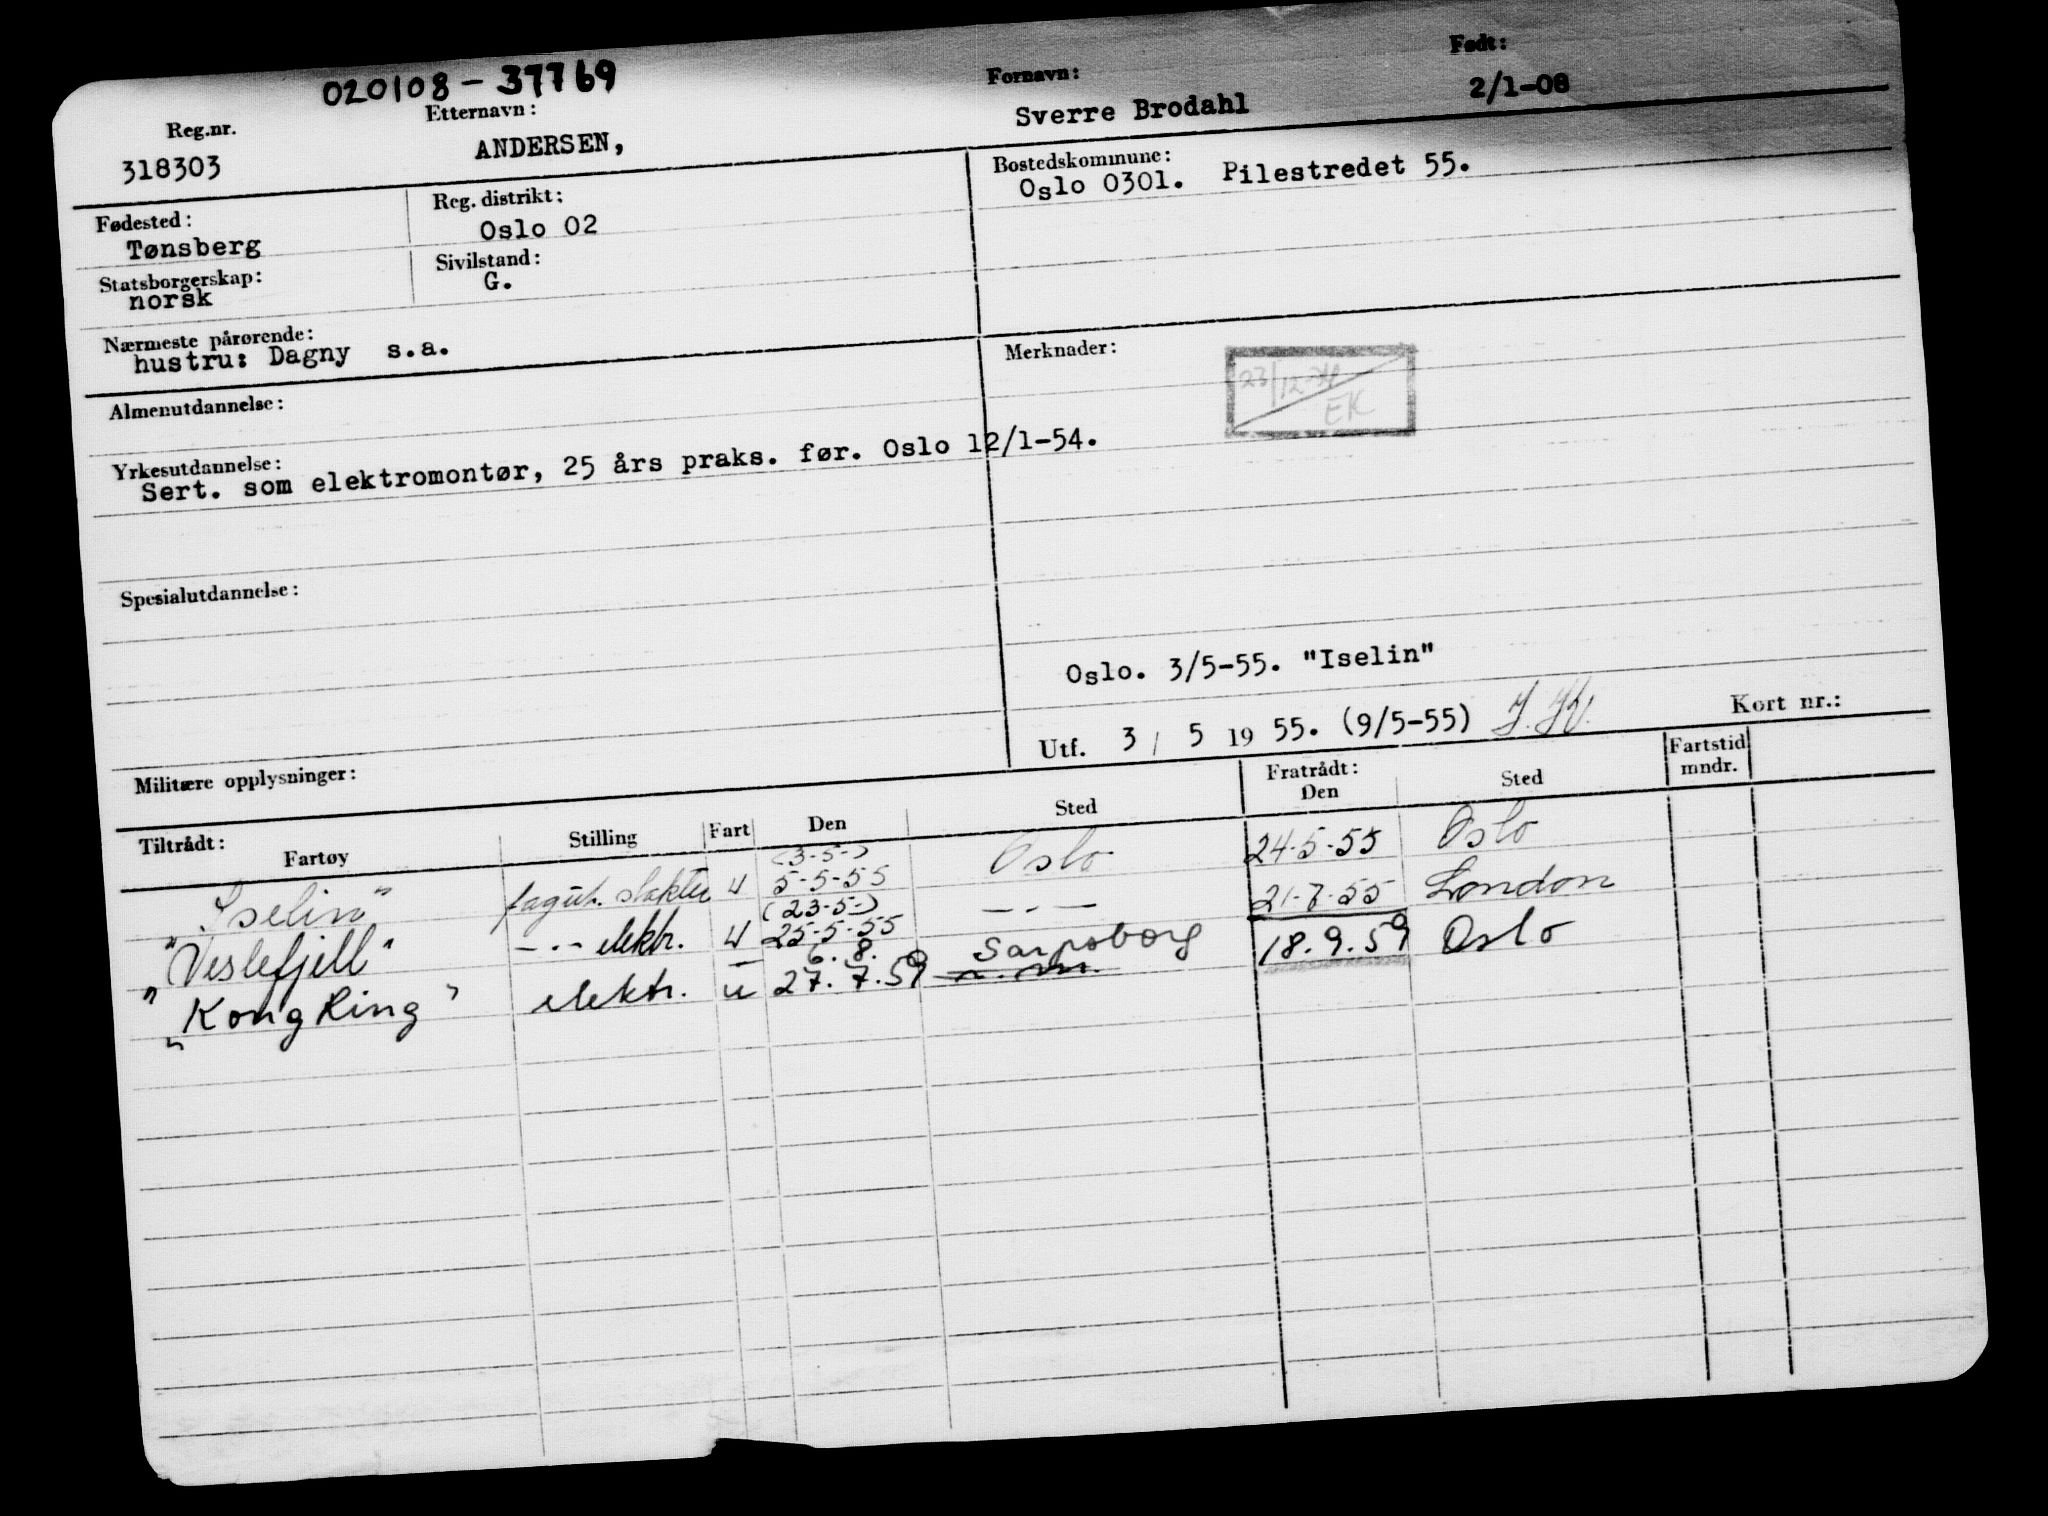 020108-37769
Reg.nr. Etternavn: Fornavn: Født:
318303 ANDERSEN, Sverre Brodahl 2/1-08
Fødested: Reg. distrikt: Bostedskommune:
Tønsberg Oslo 02 Oslo 0301. Pilestredet 55.
Statsborgerskap: Sivilstand:
norsk G.
Nærmeste pårørende:
hustru: Dagny s.a.
Merknader:
23/12-74
EK
Almenutdannelse:
Yrkesutdannelse:
Sert. som elektromontør, 25 års praks. før. Oslo 12/1-54.
Spesialutdannelse:
Oslo. 3/5-55. "Iselin"
Utf. 3 / 5 19 55. (9/5-55)
Kort nr.:
Militære opplysninger:
Tiltrådt: Fratrådt: Fartstid
Fartøy Stilling Fart Den Sted Den Sted mndr.
(3-5-)
"Iselin" u 5-5-55 Oslo 24-5-55 Oslo
(23-5-)
"Veslefjell" -"- elektr. u 25-5-55 -"- 21-7-55 London
6. 8. Sarpsborg
"Kong Ring" elektr. u 27.7.59 18.9.59 Oslo